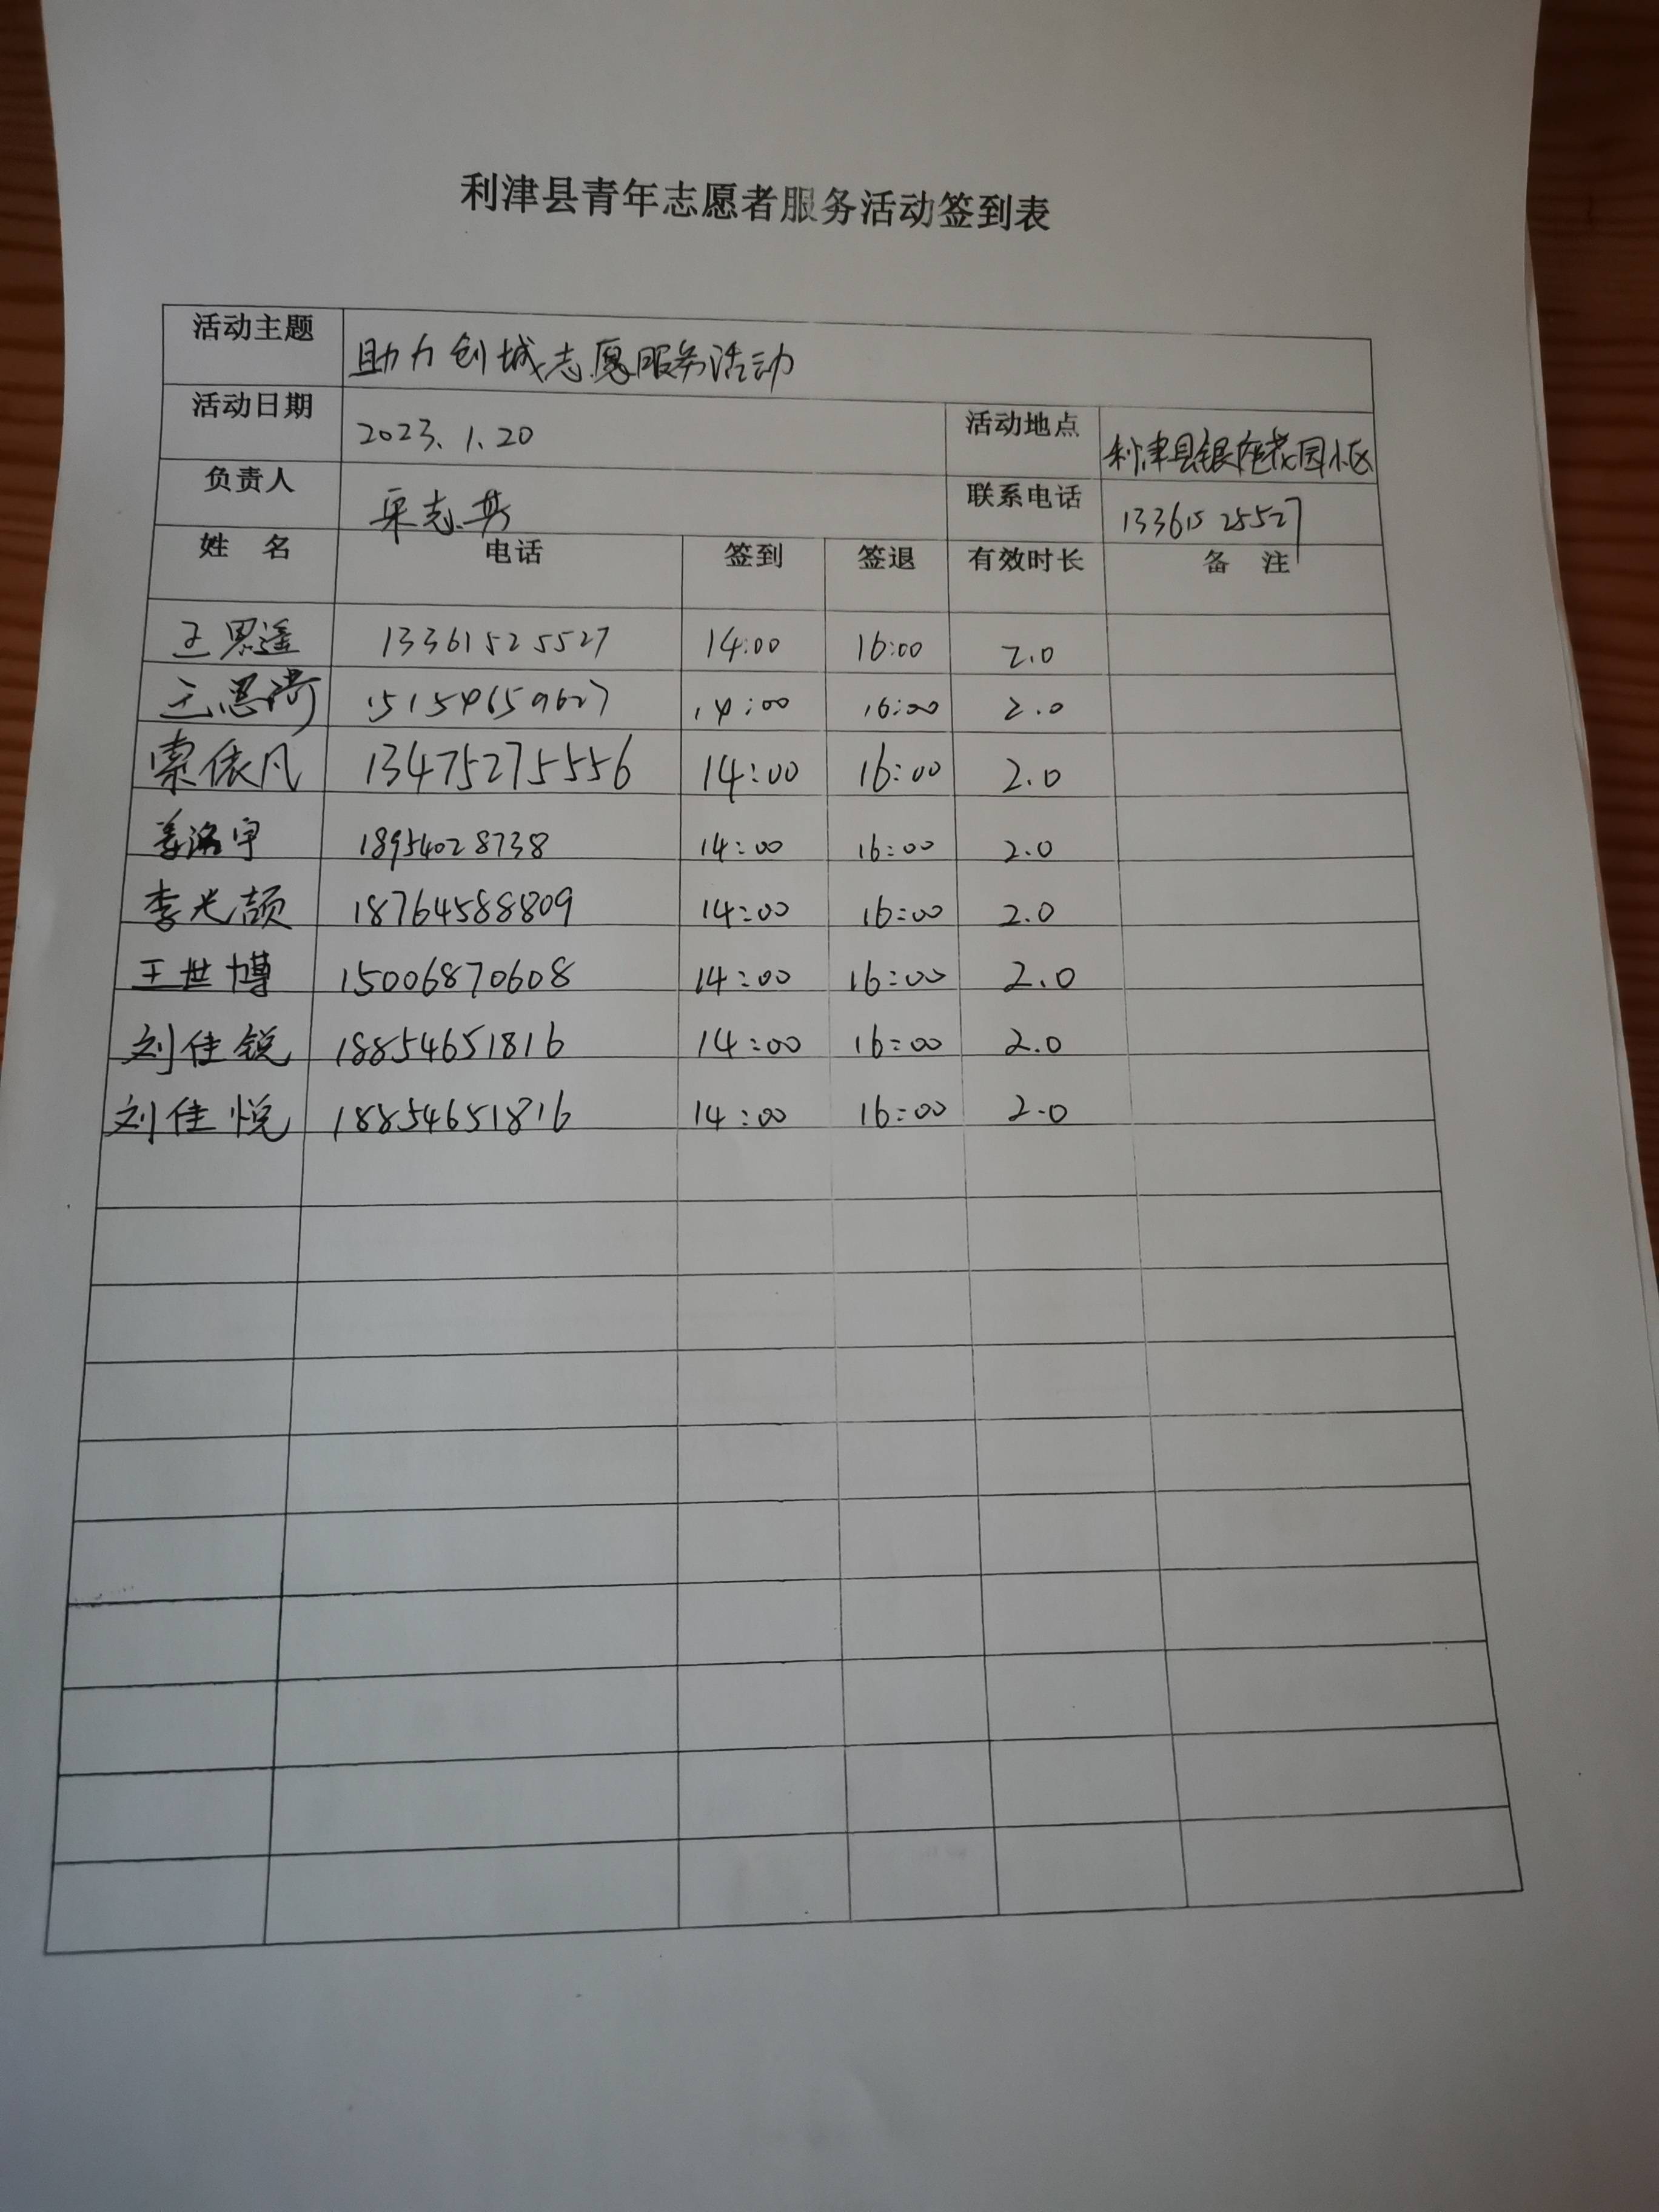 利津县青年志愿者服务活动签到表
活动主题 助力创城志愿服务活动
活动日期 2023.1.20 活动地点 利津县银座花园小区
负责人 志 联系电话 13361525527
姓 名 电话 签到 签退 有效时长 备 注
王思遥 13361525527 14:00 16:00 2.0
王思 15154659627 14:00 16:00 2.0
索依凡 13475275556 14:00 16:00 2.0
姜洛宇 18954028738 14:00 16:00 2.0
李光颉 18764588809 14:00 16:00 2.0
王世博 15006870608 14:00 16:00 2.0
刘佳锐 18854651816 14:00 16:00 2.0
刘佳悦 18854651816 14:00 16:00 2.0